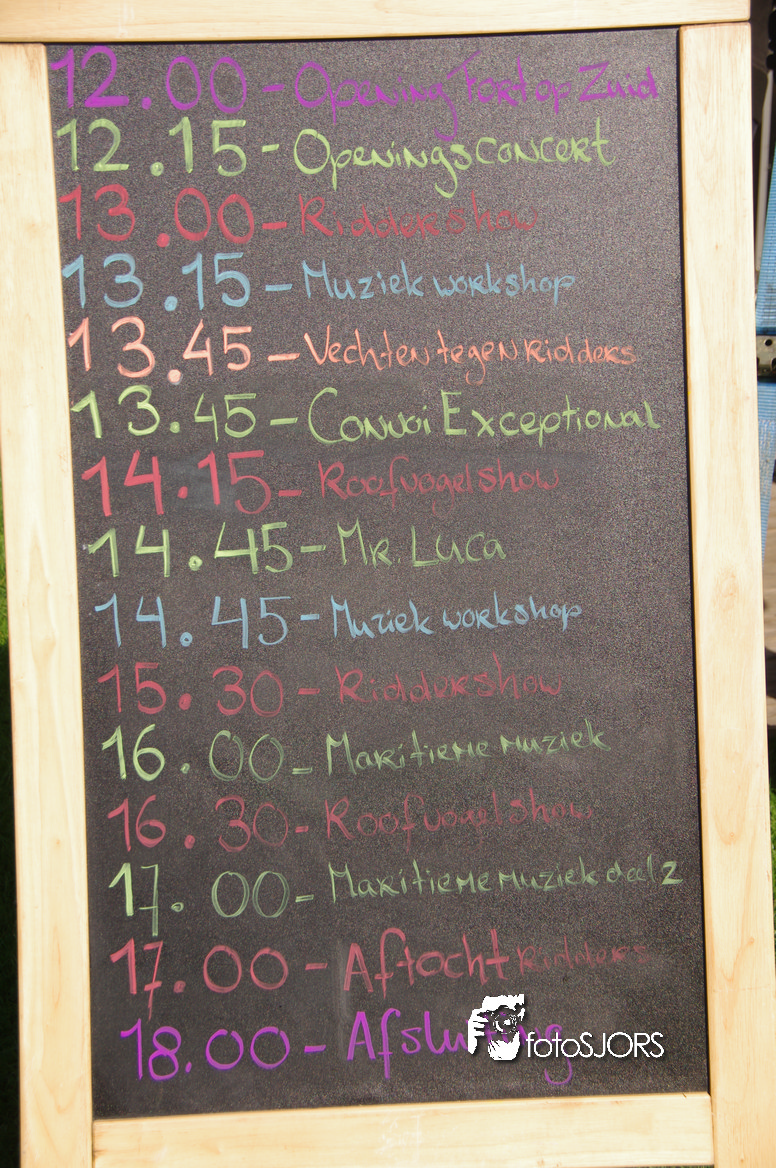 12.00 - Opening Fort op Zuid
12.15 - Openingsconcert
13.00 - Riddershow
13.15 - Muziek workshop
13.45 - Vechten tegen ridders
13.45 - Convoi Exceptional
14.15 - Roofvogelshow
14.45 - Mr. Luca
14.45 - Muziek workshop
15.30 - Riddershow
16.00 - Maritieme muziek
16.30 - Roofvogelshow
17.00 - Maritieme muziek deel 2
17.00 - Aftocht Ridders
18.00 - Afsluiting
fotoSJORS